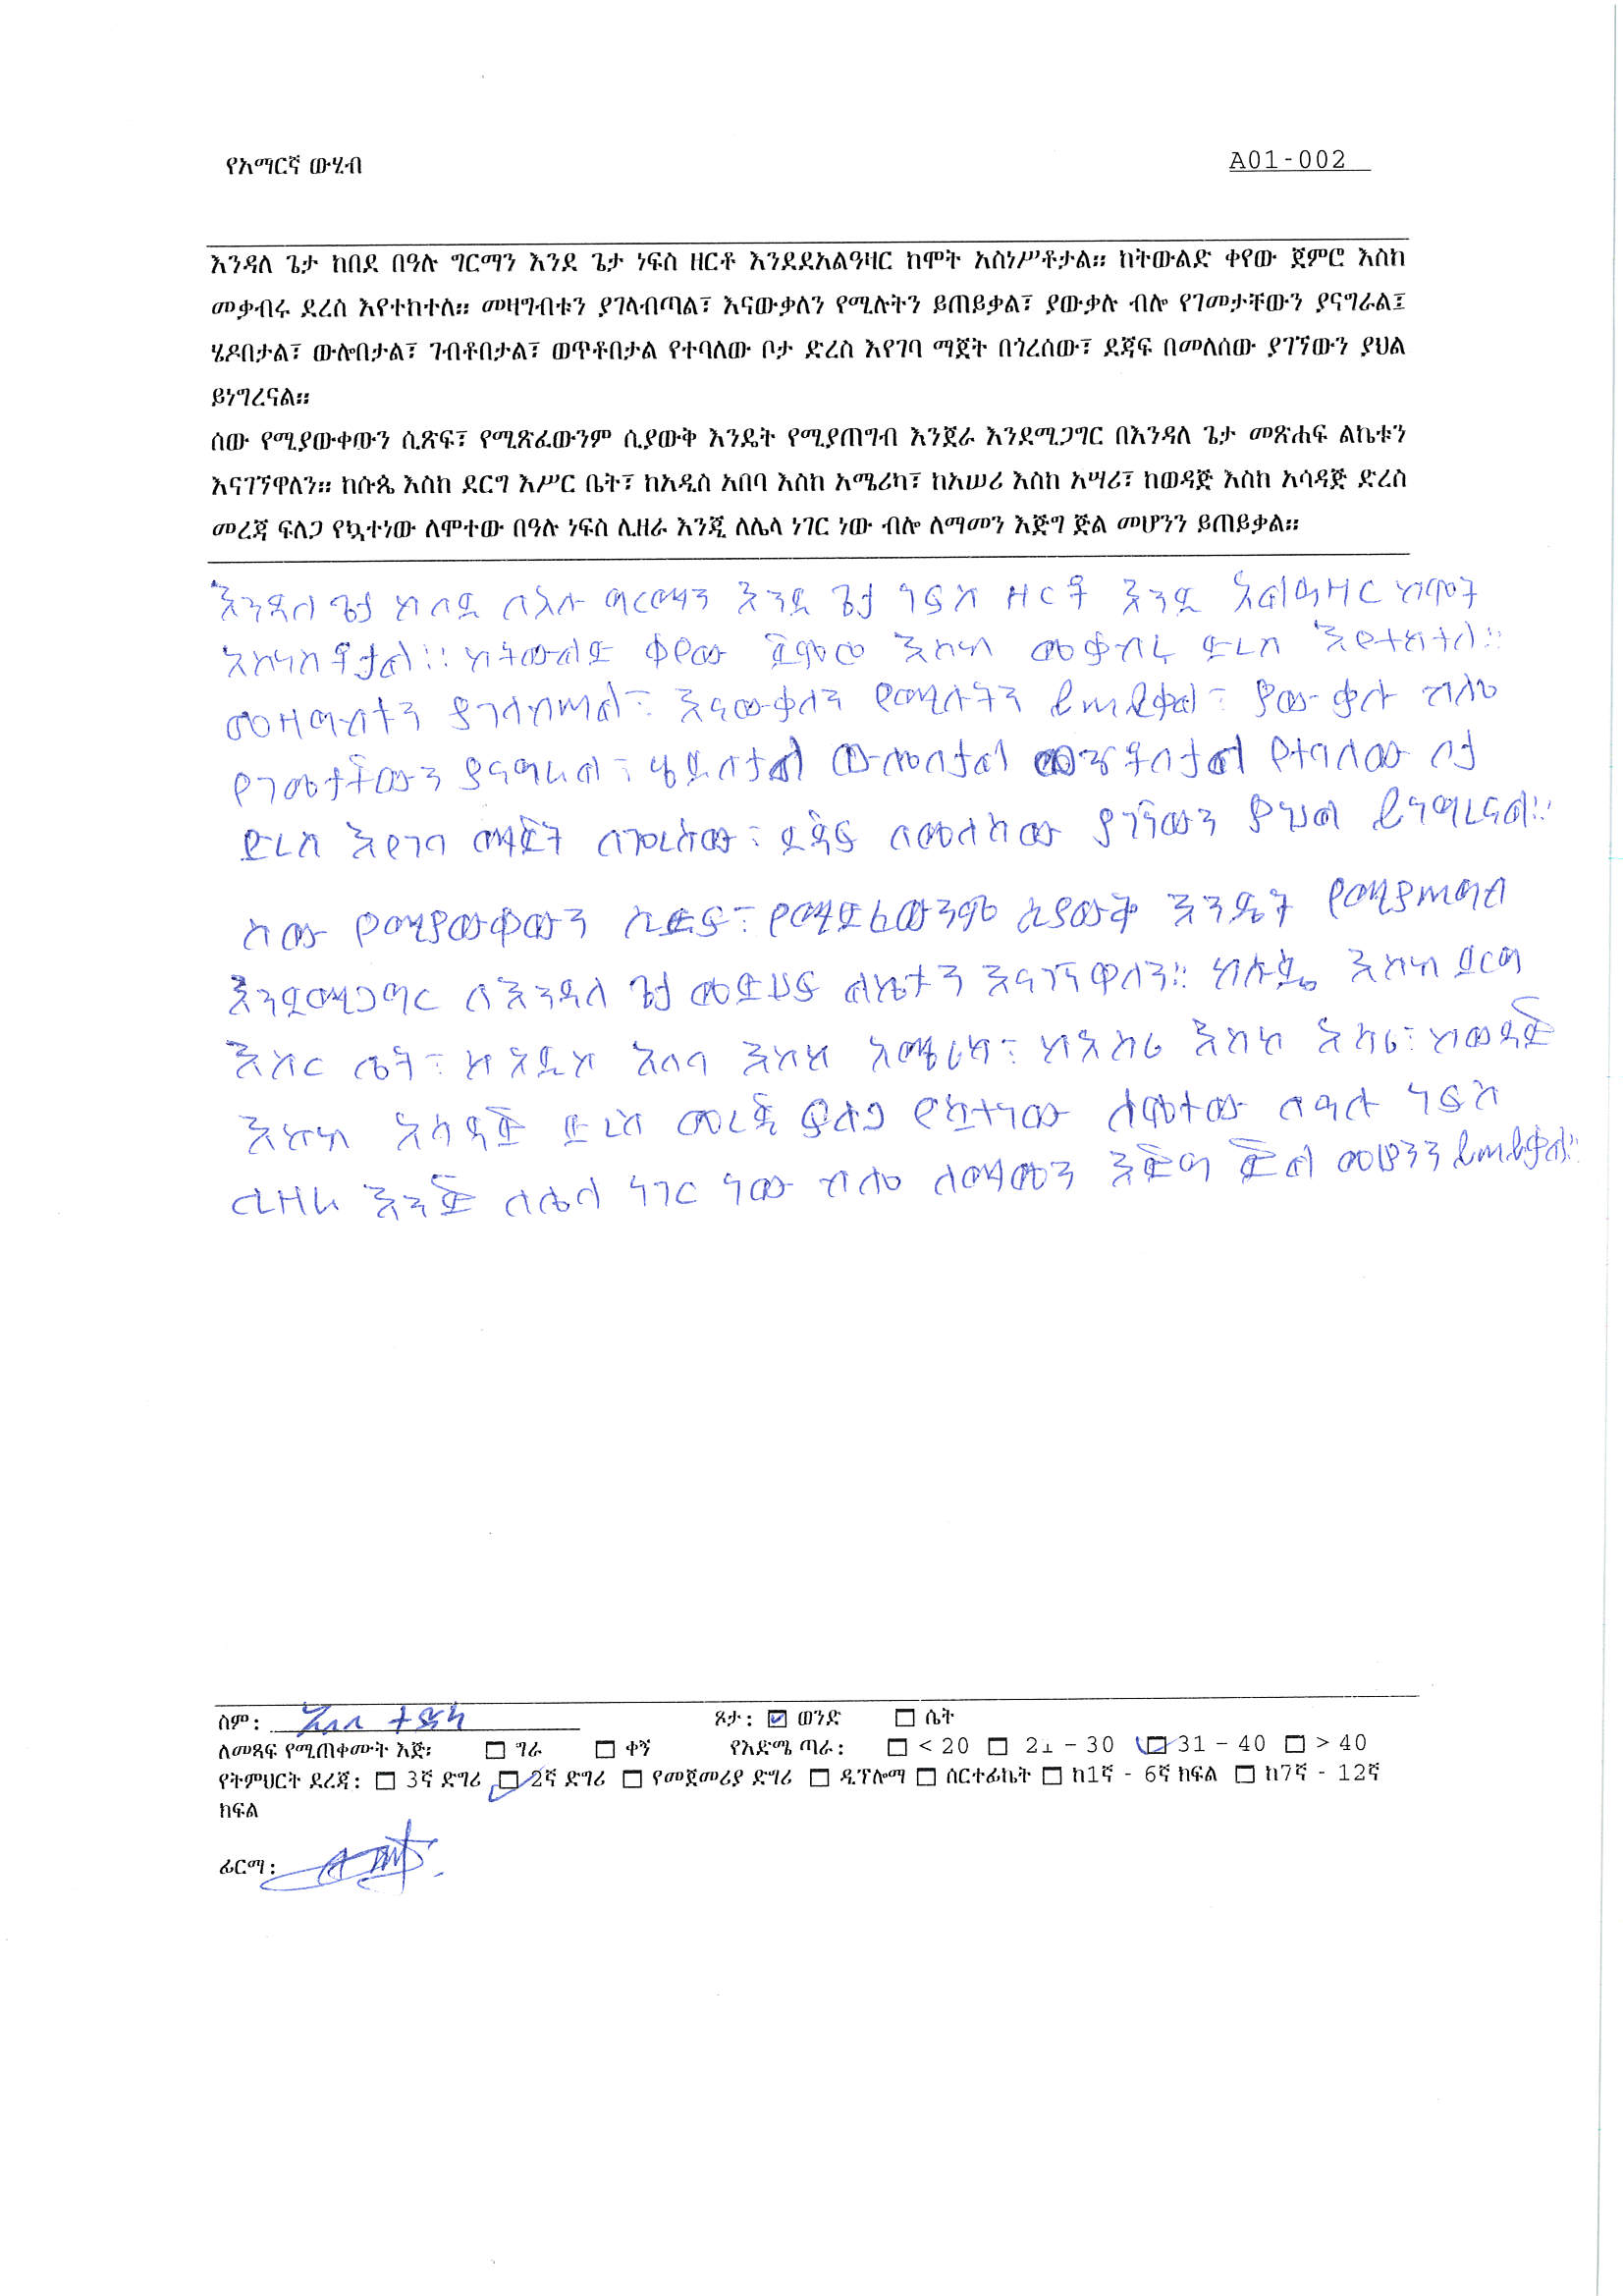 የአማርኛ ውሂብ A01-002
እንዳለ ጌታ ከበደ በዓሉ ግርማን እንደ ጌታ ነፍስ ዘርቶ እንደደአልዓዛር ከሞት አስነሥቶታል። ከትውልድ ቀየው ጀምሮ እስከ
መቃብሩ ደረስ እየተከተለ። መዛግብቱን ያገላብጣል፣ እናውቃለን የሚሉትን ይጠይቃል፣ ያውቃሉ ብሎ የገመታቸውን ያናግራል፤
ሄዶበታል፣ ውሎበታል፣ ገብቶበታል፣ ወጥቶበታል የተባለው ቦታ ድረስ እየገባ ማጀት በጎረሰው፣ ደጃፍ በመለሰው ያገኘውን ያህል
ይነግረናል።
ሰው የሚያውቀውን ሲጽፍ፣ የሚጽፈውንም ሲያውቅ እንዴት የሚያጠግብ እንጀራ እንደሚጋግር በእንዳለ ጌታ መጽሐፍ ልኬቱን
እናገኘዋለን። ከሱጴ እስከ ደርግ እሥር ቤት፣ ከአዲስ አበባ እስከ አሜሪካ፣ ከአሠሪ እስከ አሣሪ፣ ከወዳጅ እስከ አሳዳጅ ድረስ
መረጃ ፍለጋ የኳተነው ለሞተው በዓሉ ነፍስ ሊዘራ እንጂ ለሌላ ነገር ነው ብሎ ለማመን እጅግ ጅል መሆንን ይጠይቃል።
እንዳለ ጌታ ከበደ በአሉ ግርማን እንደ ጌታ ነፍስ ዘርቶ እንደ አልዓዛር ከሞት
አስነስቶታል። ከትውልድ ቀየው ጀምሮ እስከ መቃብሩ ድረስ እየተከተለ።
መዛግብቱን ያገላብጣል፣ እናውቃለን የሚሉትን ይጠይቃል፣ ያውቃሉ ብሎ
የገመታቸውን ያናግራል፣ ሄዶበታል ውሎበታል የተባለው ቦታ
ድረስ እየገባ ማጀት በጎረሰው፣ ደጃፍ በመለሰው ያገኘውን ያህል ይነግረናል።
ሰው የሚያውቀውን ሲጽፍ፣ የሚጽፈውንም ሲያውቅ እንዴት የሚያጠግብ
እንደሚጋግር በእንዳለ ጌታ መጽሀፍ ልኬቱን እናገኘዋለን። ከሱጴ እስከ ደርግ
እስር ቤት፣ ከአዲስ አበባ እስከ አሜሪካ፣ ከአሰሪ እስከ አሳሪ፣ ከወዳጅ
እስከ አሳዳጅ ድረስ መረጃ ፍለጋ የኳተነው ለሞተው በዓሉ ነፍስ
ሊዘራ እንጅ ለሌላ ነገር ነው ብሎ ለማመን እጅግ ጅል መሆንን ይጠይቃል።
ስም: ፆታ: ወንድ ሴት
ለመጻፍ የሚጠቀሙት እጅ፡ ግራ ቀኝ የእድሜ ጣራ: < 20 21 - 30 31 - 40 > 40
የትምህርት ደረጃ: 3ኛ ድግሪ 2ኛ ድግሪ የመጀመሪያ ድግሪ ዲፕሎማ ሰርተፊኬት ከ1ኛ - 6ኛ ክፍል ከ7ኛ - 12ኛ
ክፍል
ፊርማ: